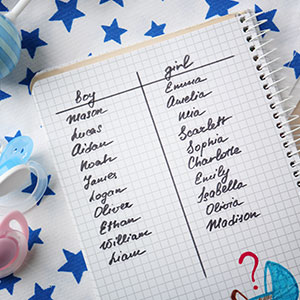 Boy girl
Mason Emma
Lucas Amelia
Aidan Mia
Noah Scarlett
James Sophia
Logan Charlotte
Oliver Emily
Ethan Isabella
William Olivia
Liam Madison
?